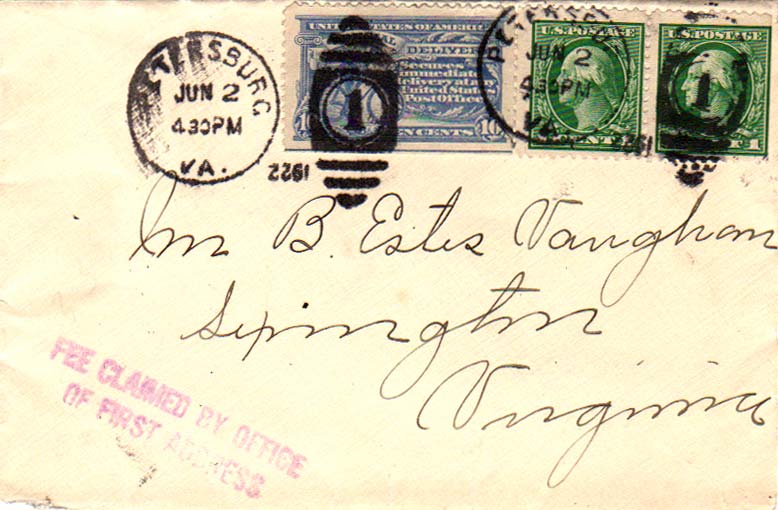 PETERSBURG
JUN 2
4 30 PM
VA.
1922
UNITED STATES OF AMERICA
DELIVERY
Secures
immediate
delivery at any
United States
Post Office
10 TEN CENTS 10
1
PETERSB
JUN 2
4 30 PM
VA.
1922
U.S. POSTAGE
CENT
U.S. POSTAGE
1
1
Mr B. Estes Vaughan
Lexington
Virginia
FEE CLAIMED BY OFFICE
OF FIRST ADDRESS